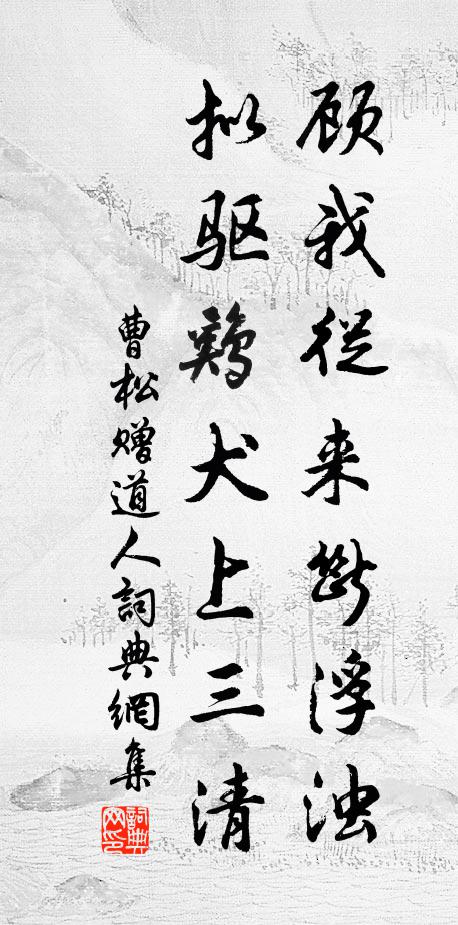 顾我从来断浮浊
拟驱鸡犬上三清
曹松赠道人詞典網集
詞典网印